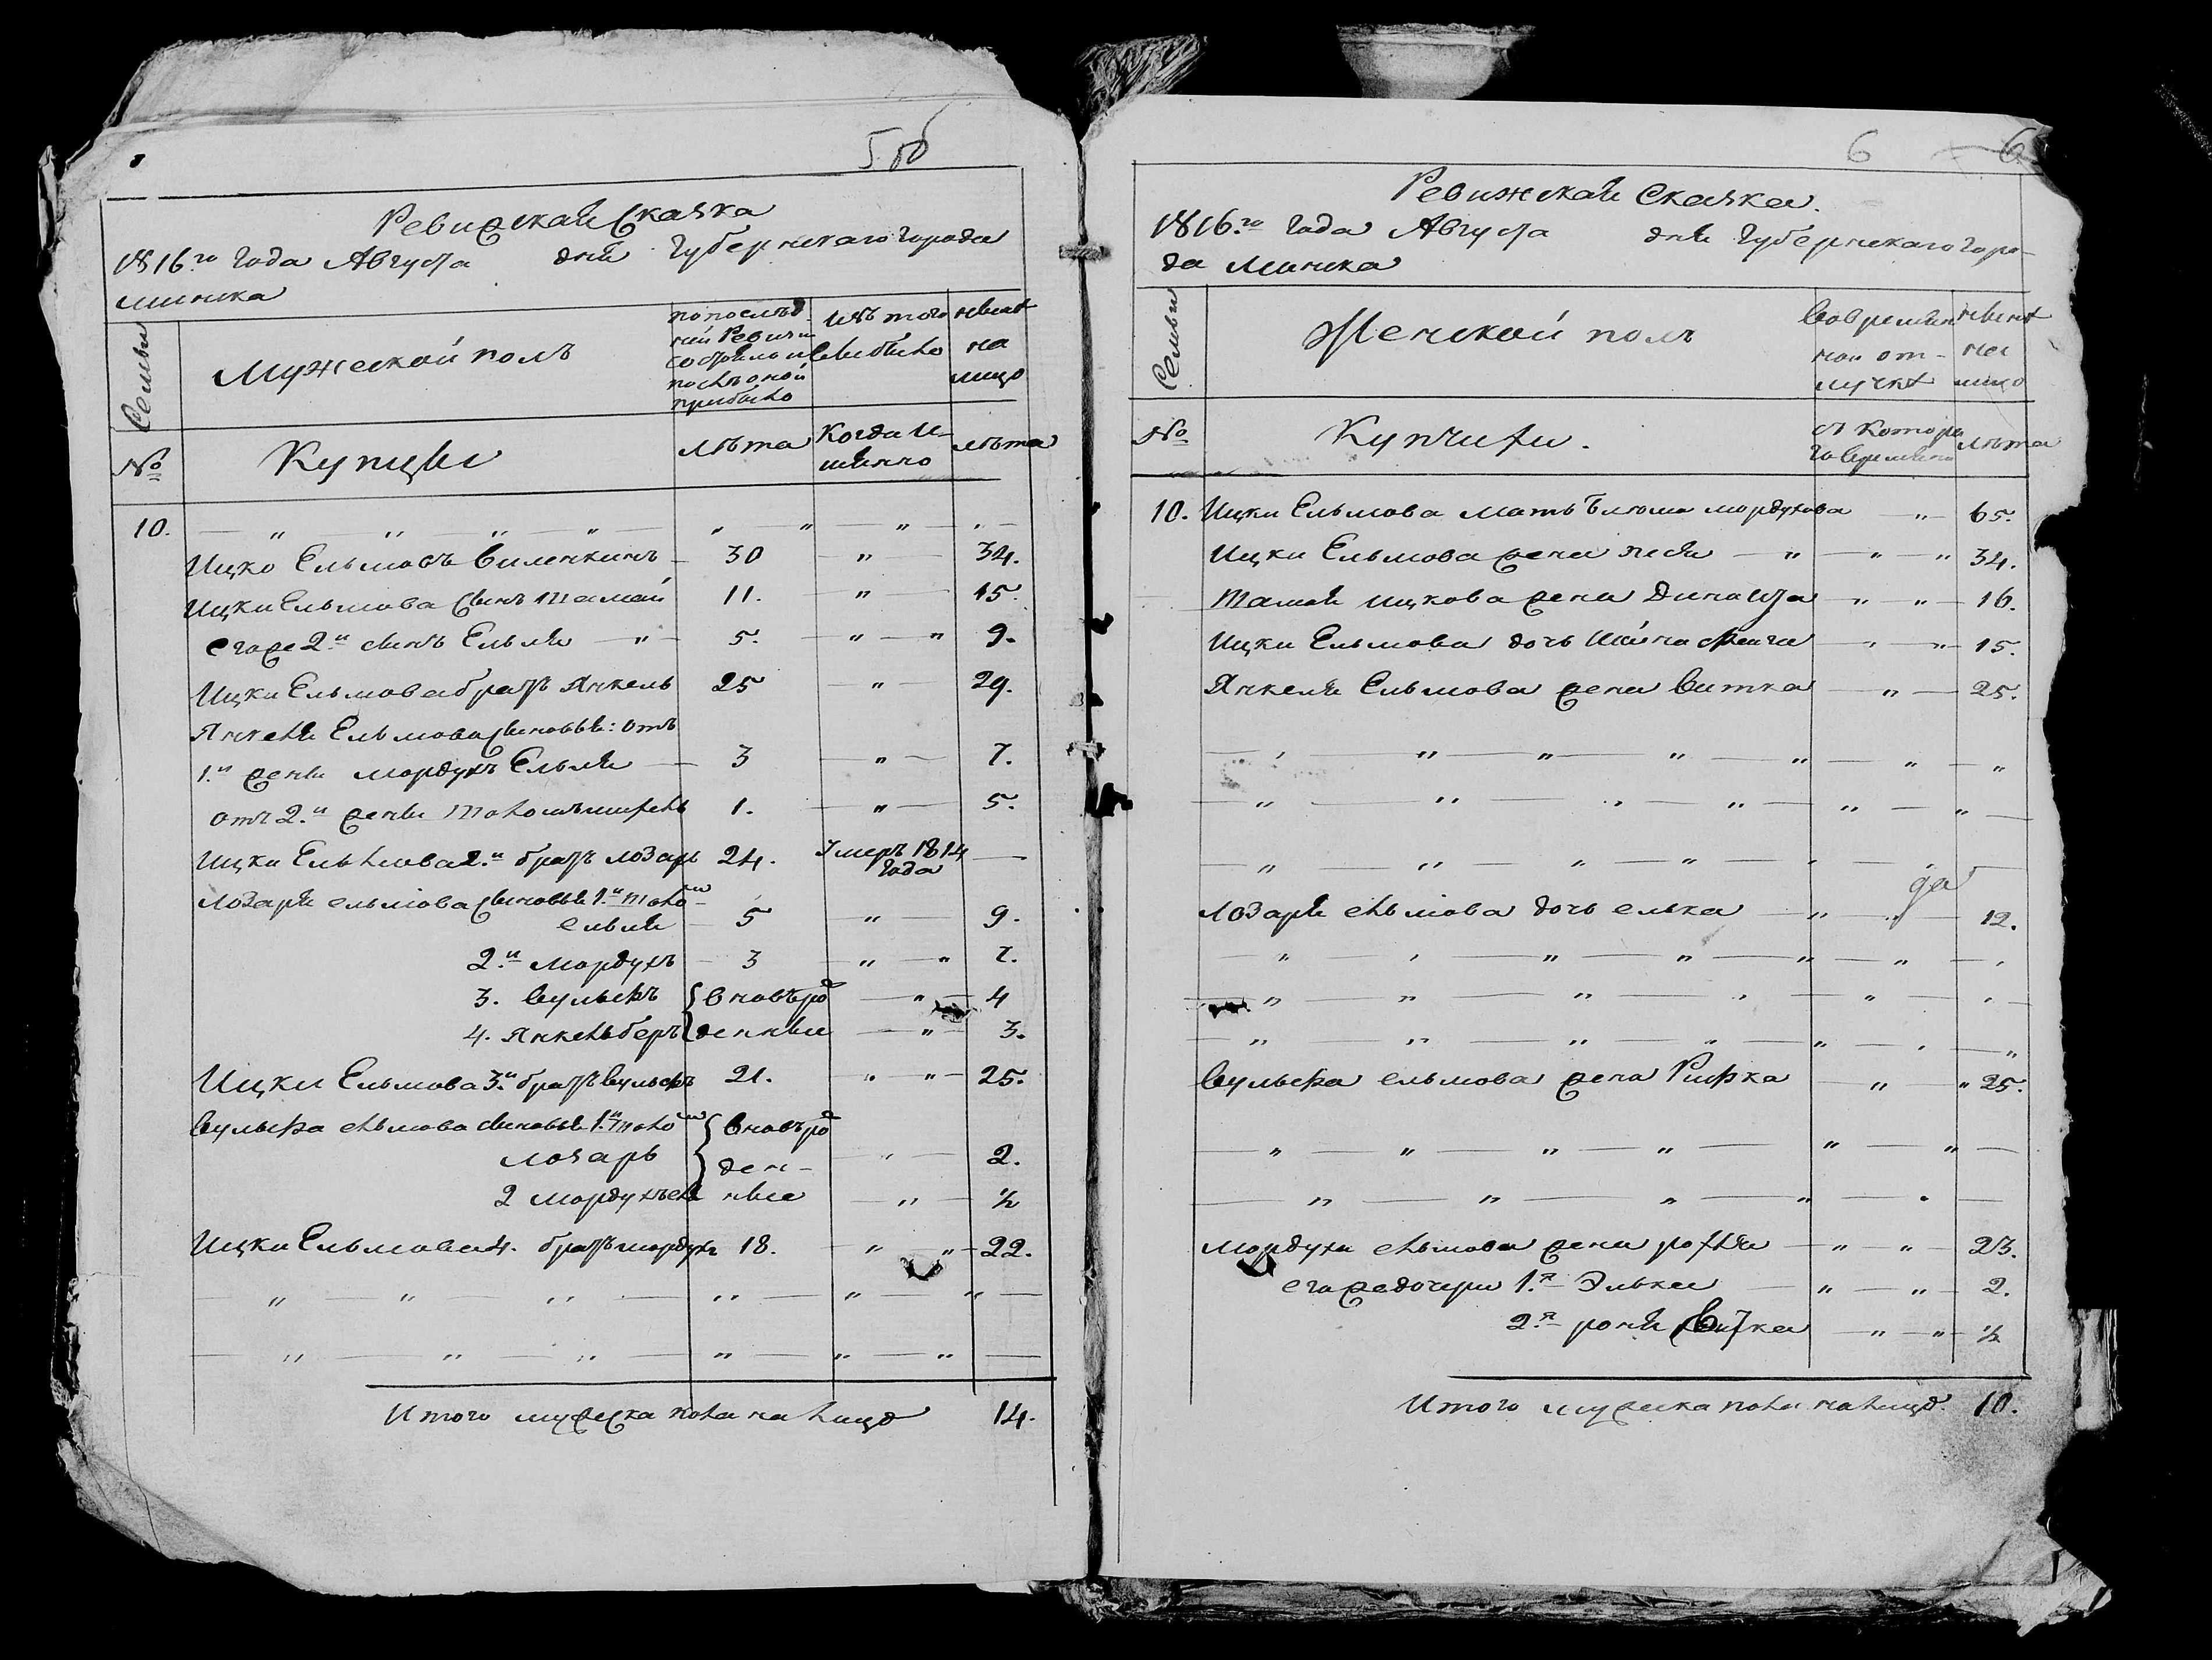 5 об
Ревижская Сказка
1816го года Августа дня Губернскаго города
Минска
Семьи
Мужеской полъ
по послѣд
ней Ревизи
состояло и
послѣ оной
прибыло
Изъ того
выбыло
ныне
на
лицо
№
Купцы
Лѣта
Когда И-
мянно
лѣта
10.
Ицко Ельмовъ Виленкинъ 30 " 34.
Ицки Ельмова сынъ Шамай 11. " 15.
егоже 2й сынъ Ельмя " 5. " " 9.
Ицки Ельмова братъ Янкель 25 " 29.
Янкеля Ельмова сыновья: отъ
1й жены Мордухъ Ельмя 3 " 7.
отъ 2й жены 1. " 5.
Ицки Ельмова 2й братъ Лозарь 24. Умеръ 1814
года
Лозаря ельмова сыновья 1й
ельмя 5 " 9.
2й Мордухъ 3 " " 7.
3. Вульфъ вновьро " 4
4. Янкельберъ денные " 3.
Ицки Ельмова 3й братъ Вульфъ 21. " " 25.
Вульфа ельмова сыновья 1й вновьро
лозарь ден- " 2.
2 ные " ½
Ицки Ельмова 4. братъ мордухъ 18. " " 22.
Итого мужеска пола на лицо 14.
6 6
Ревижская Сказка.
1816го года Августа дня Губернскаго горо-
да Минска
Семьи
Женской полъ
Во времян
ной от-
лучке
ныне
на
лицо
№
Купчихи.
съ котора
го времени
лѣта
10. Ицки Ельмова мать Блюма мордухова " 65.
Ицки Ельмова жена песя " " " 34.
Шамая ицкова жена " " 16.
Ицки Ельмова дочь 15.
Янкеля Ельмова жена Витка " 25.
да
Лозаря ельмова дочь елька " 12.
Вульфа ельмова жена Рифка " " 25.
Мордуха ельмова жена " " 23.
егоже дочери 1я Элька " " 2.
2я роня Витка " " ½
Итого мужеска пола на лицо. 10.